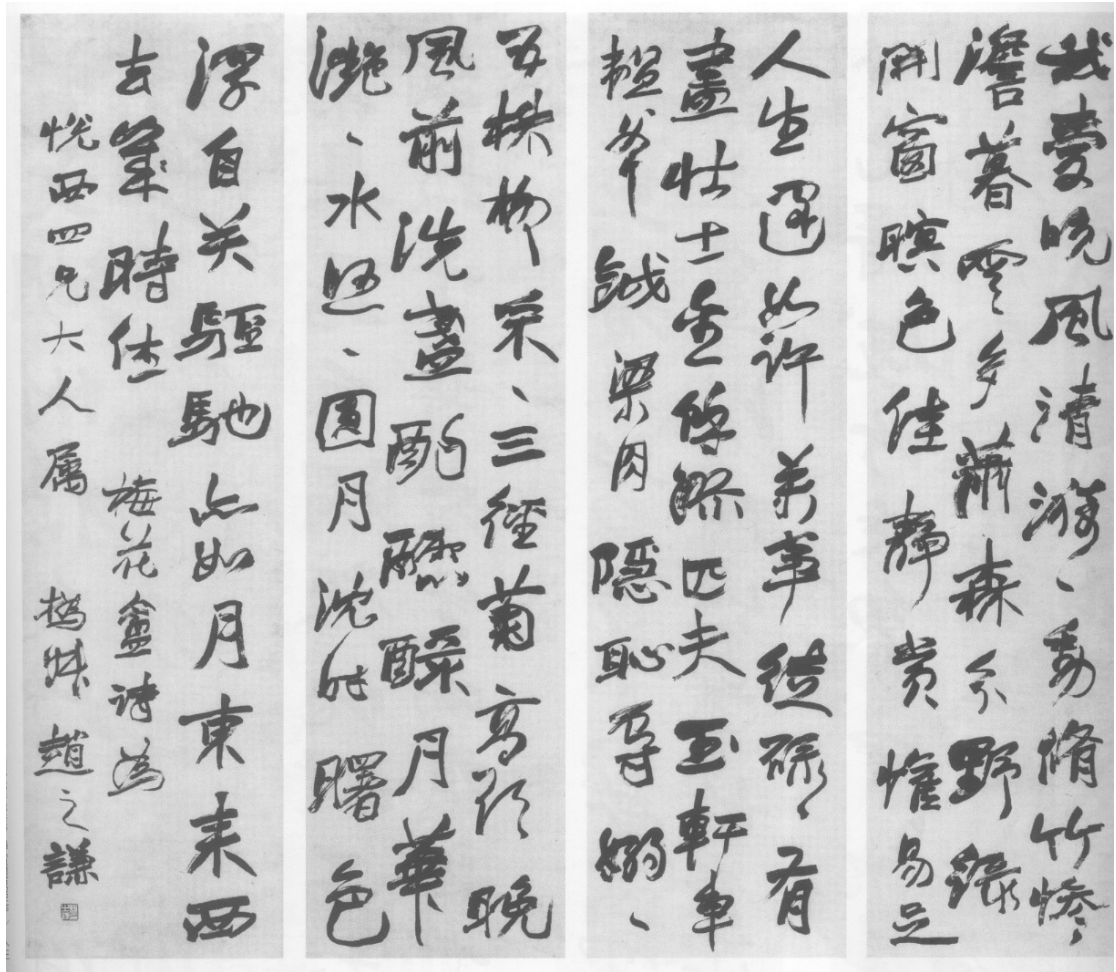 我愛晚風清漪、動脩竹慘
澹暮雲多蕭森分野綠
開窗暝色佳靜賞惟易足
人生遽如許萬事徒碌、有
盡壯士金 匹夫玉軒車
韞斧鉞粱肉隱恥辱嫋、
五株柳采、三徑菊高歌晚
風前洗盞酌醽醁月華
灔、水悠、圓月沈時曙色
浮自笑驅馳亦如月東來西
去幾時休 梅花盦詩為
悅西四兄大人屬 撝叔趙之謙